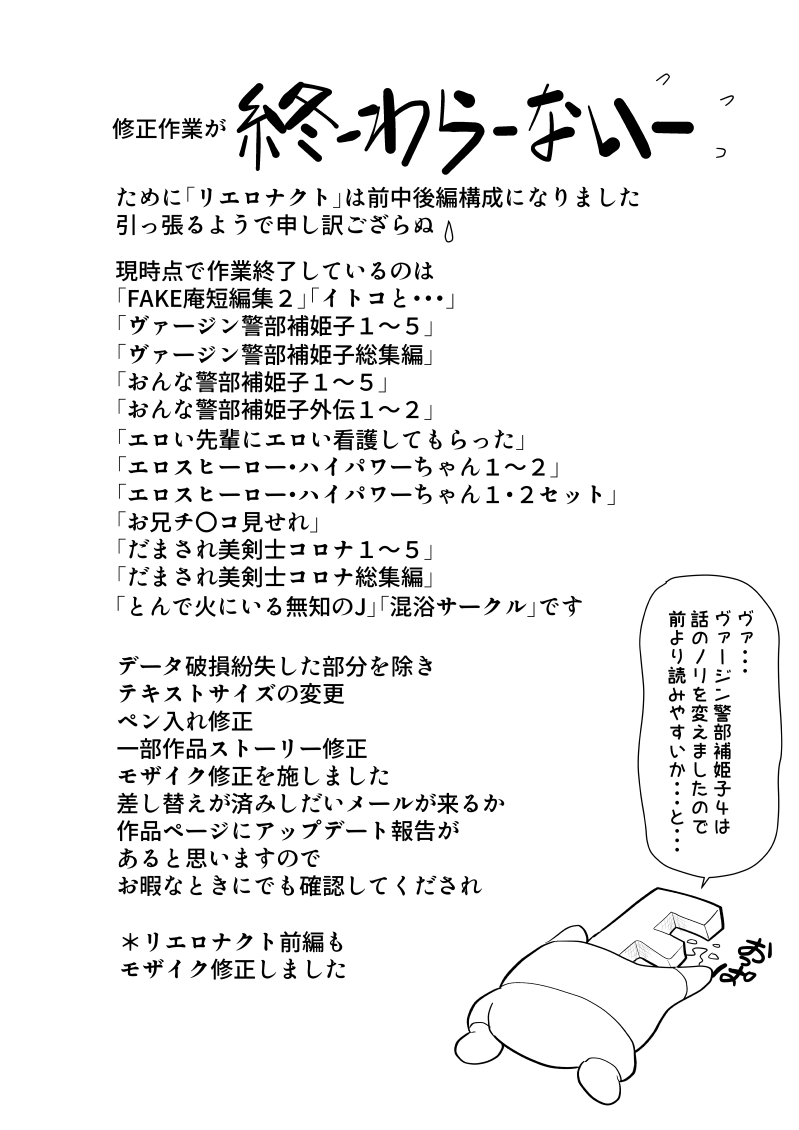 修正作業が終ーわらーないー
ために「リエロナクト」は前中後編構成になりました
引っ張るようで申し訳ござらぬ
現時点で作業終了しているのは
「FAKE庵短編集２」「イトコと・・・」
「ヴァージン警部補姫子１～５」
「ヴァージン警部補姫子総集編」
「おんな警部補姫子１～５」
「おんな警部補姫子外伝１～２」
「エロい先輩にエロい看護してもらった」
「エロスヒーロー・ハイパワーちゃん１～２」
「エロスヒーロー・ハイパワーちゃん１・２セット」
「お兄チ〇コ見せれ」
「だまされ美剣士コロナ１～５」
「だまされ美剣士コロナ総集編」
「とんで火にいる無知のJ」「混浴サークル」です
データ破損紛失した部分を除き
テキストサイズの変更
ペン入れ修正
一部作品ストーリー修正
モザイク修正を施しました
差し替えが済みしだいメールが来るか
作品ページにアップデート報告が
あると思いますので
お暇なときにでも確認してくだされ
＊リエロナクト前編も
モザイク修正しました
ヴァ・・・
ヴァージン警部補姫子４は
話のノリを変えましたので
前より読みやすいか・・・と・・・
E